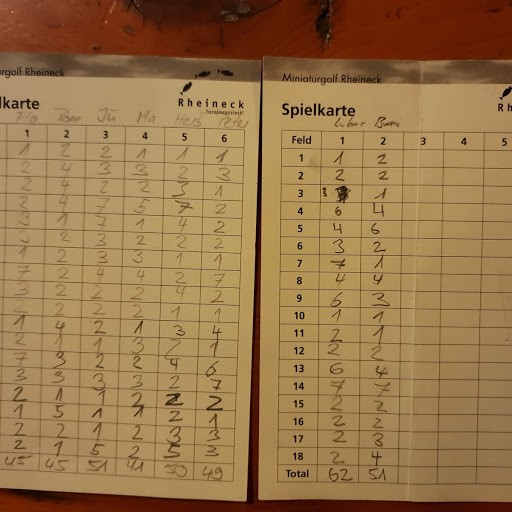 urgolf Rheineck
Rheineck
lkarte
Flo Ju Ma Peter
1 2 3 4 5 6
1 2 2 1 1 1
2 4 3 3 2 3
2 4 2 2 3 1
2 4 7 5 7 2
3 1 7 1 4 2
2 3 2 2 2
1 2 3 3 1 1
7 2 4 4 2 7
3 2 2 2 4 2
2 2 2 2 1 1
1 4 2 1 3 4
2 1 1 3 2 1
7 3 2 2 4 6
3 3 3 3 2 7
2 1 1 2 2 2
1 5 1 1 2 1
2 2 1 2 3 3
2 1 5 2 5 3
45 45 51 41 50 49
Miniaturgolf Rheineck
Rh
Spielkarte
Feld 1 2 3 4 5
1 1 2
2 2 2
3 3 1
4 6 4
5 4 6
6 3 2
7 7 1
8 4 4
9 6 3
10 1 1
11 2 1
12 2 2
13 6 4
14 7 7
15 2 2
16 2 2
17 2 3
18 2 4
Total 62 51